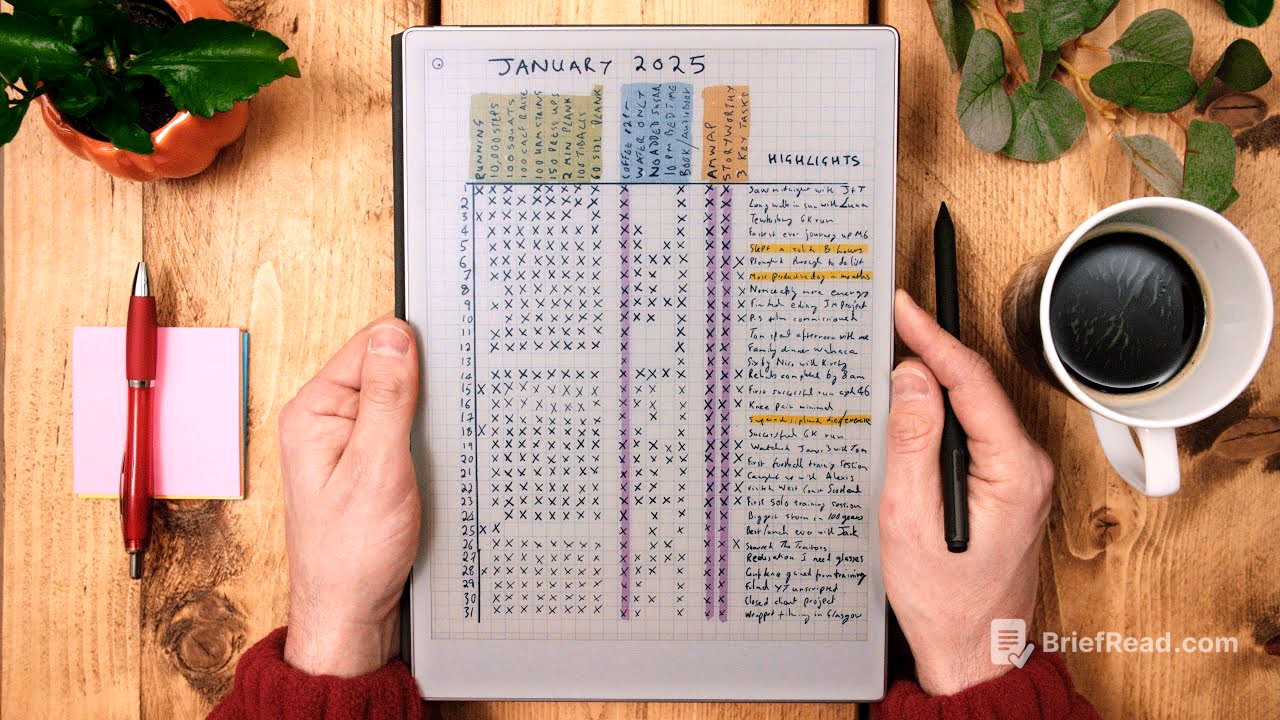 JANUARY 2025
RUNNING
10,000 STEPS
100 SQUATS
100 CALF RAISE
100 HAMSTRING
150 PRESS UPS
2 MIN PLANK
100 TIBIALIS
60 SIDE PLANK
COFFEE
WATER ONLY
NO ADDED SUGAR
10 PM BEDTIME
BOOK/AUDIOBOOK
AMWAP
STORYWORTHY
3 KEY TASKS
HIGHLIGHTS
1 Saw midnight with J+T
2 Long walk in sun with
3 6K run
4 Fastest ever journey up M6
5 Slept a solid 8 hours
6 through to do list
7 Most productive day in months
8 Noticeably more energy
9 Finished editing Jm project
10 film commissioned
11 Tom spent afternoon with me
12 Family dinner
13 with
14 completed by Siam
15 First successful run
16 Knee pain minimal
17
18 Successful 6K run
19 Watched with Tom
20 First football training session
21 Caught up with Alexis
22 Visited West Coast Scotland
23 First solo training session
24 Biggest storm in 100 years
25 Best lunch ever with Jack
26 Started The Traitors
27 Realisation I need glasses
28 Confidence gained from training
29 Filmed YT unscripted
30 Closed client project
31 Wrapped filming in Glasgow
BriefRead.com